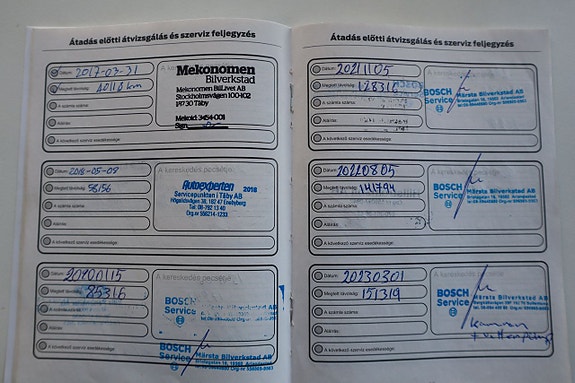 Átadás előtti átvizsgálás és szerviz feljegyzés
Dátum: 2017-03-31
Megtett távolság:
A számla száma:
Aláírás:
A következő szerviz esedékessége:
Mekonomen
Bilverkstad
Mekonomen BilLivet AB
Stockholmsvägen 100-102
187 30 Täby
Mekoid: 3454-001
Sign
Dátum: 2018-05-08
Megtett távolság: 58156
A számla száma:
Aláírás:
A következő szerviz esedékessége:
A kereskedés pecsétje
Autoexperten 2018
Servicepunkten i Täby AB
Enebyberg
Tel: 08-792 13 40
Org.nr 556214-1233
Dátum: 20200115
Megtett távolság: 85316
A számla száma:
Aláírás:
A következő szerviz esedékessége:
A kereskedés pecsétje
BOSCH
Service
BOSCH
Service
Märsta Bilverkstad AB
Átadás előtti átvizsgálás és szerviz feljegyzés
Dátum: 20211105
Megtett távolság: 128316
A számla száma:
Aláírás:
A következő szerviz esedékessége:
BOSCH
Service
Märsta Bilverkstad AB
Dátum: 20220805
Megtett távolság: 141794
A számla száma:
Aláírás:
A következő szerviz esedékessége:
BOSCH
Service
Märsta Bilverkstad AB
Dátum: 20230301
Megtett távolság: 151319
A számla száma:
Aláírás:
A következő szerviz esedékessége:
BOSCH
Service
Märsta Bilverkstad AB